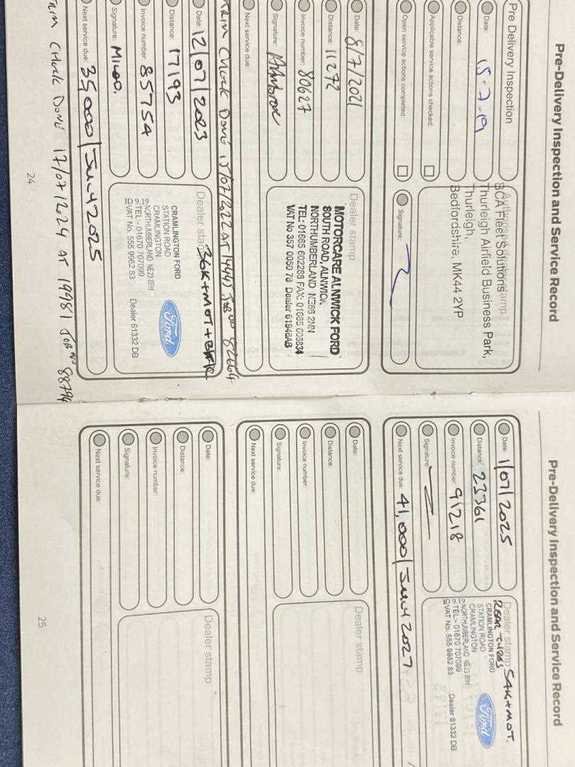 Pre-Delivery Inspection and Service Record
Pre Delivery Inspection
Date: 15.7.19
Distance:
Applicable service actions checked:
Open service actions completed:
Dealer stamp
BCA Fleet Solutions
Thurleigh Airfield Business Park,
Thurleigh,
Bedfordshire, MK44 2YP
Signature:
Date: 8/7/2021
Distance: 11272
Invoice number: 80627
Signature:
Next service due:
Dealer stamp
MOTORCARE ALNWICK FORD
SOUTH ROAD, ALNWICK,
NORTHUMBERLAND NE66 2NN
TEL: 01665 602288 FAX: 01665 603834
VAT No 357 0050 78 Dealer 61946AB
DONE 15/07/2022 AT 14445 JOB NO 82664
Date: 12/07/2023
Distance: 17193
Invoice number: 85754
Signature:
Next service due: 35,000 / July 2025
Dealer stamp
36K+MOT+
CRAMLINGTON FORD
STATION ROAD
CRAMLINGTON
NORTHUMBERLAND
TEL:- 01670 707099
VAT No. 555 9982 83 Dealer 61332 DB
Ford
DONE 17/07/2024 AT 19981 JOB NO 88794
24
Pre-Delivery Inspection and Service Record
Date: 1/07/2025
Distance: 23361
Invoice number: 91218
Signature:
Next service due: 41,000 / July 2027
Dealer stamp
54K+MOT.
CRAMLINGTON FORD
STATION ROAD
CRAMLINGTON
NORTHUMBERLAND
TEL:- 01670 707099
VAT No. 555 9982 83 Dealer 61332 DB
Ford
Date:
Distance:
Invoice number:
Signature:
Next service due:
Dealer stamp
Date:
Distance:
Invoice number:
Signature:
Next service due:
Dealer stamp
25